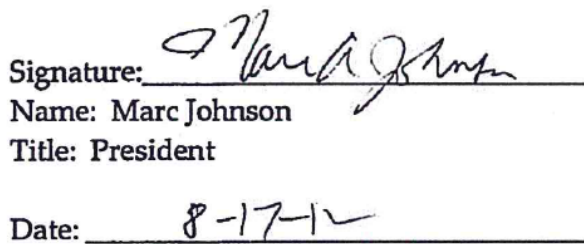 Signature: Marc A Johnson
Name: Marc Johnson
Title: President
Date: 8-17-12